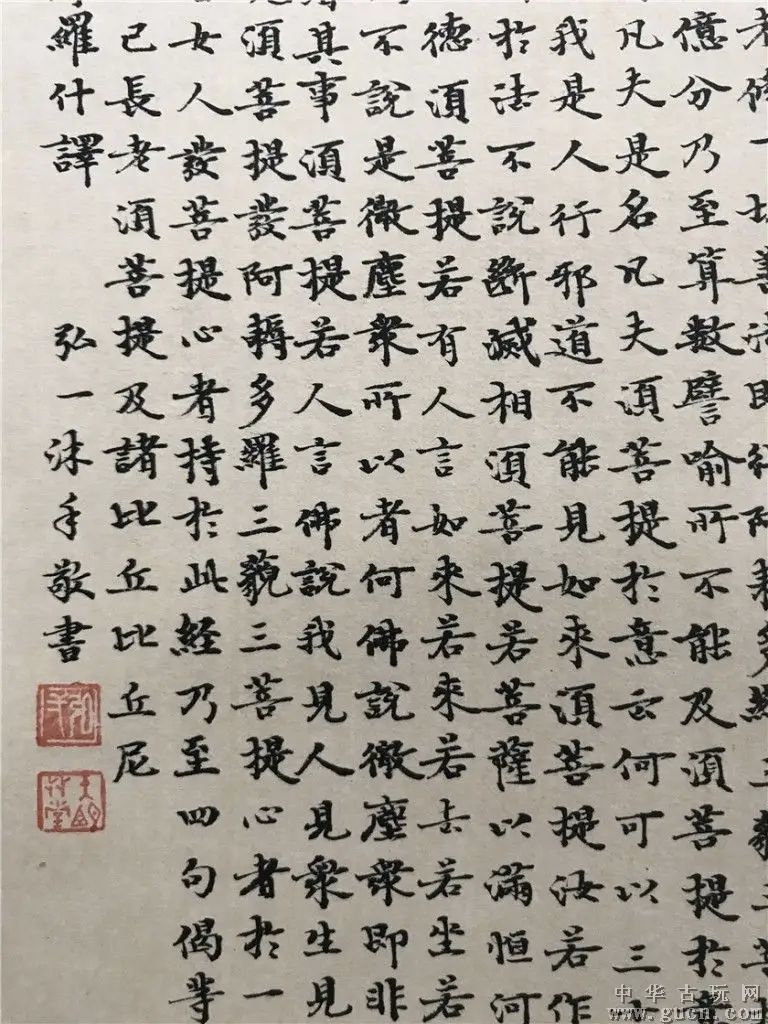 者修一切善法即得阿耨多羅三藐三菩提
億分乃至算數譬喻所不能及須菩提於意
凡夫是名凡夫須菩提於意云何可以三十
我是人行邪道不能見如來須菩提汝若作
於法不說斷滅相須菩提若菩薩以滿恒河
德須菩提若有人言如來若來若去若坐若
不說是微塵衆所以者何佛說微塵衆即非
其事須菩提若人言佛說我見人見衆生見
須菩提發阿耨多羅三藐三菩提心者於一
女人發菩提心者持於此経乃至四句偈等
已長老須菩提及諸比丘比丘尼
羅什譯 弘一沐手敬書
中华古玩网
www.gucn.com